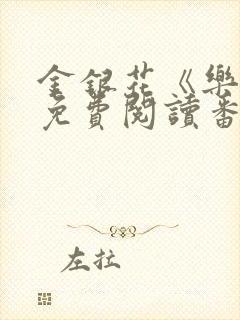 金銀花《樂
免費閱讀番
左拉